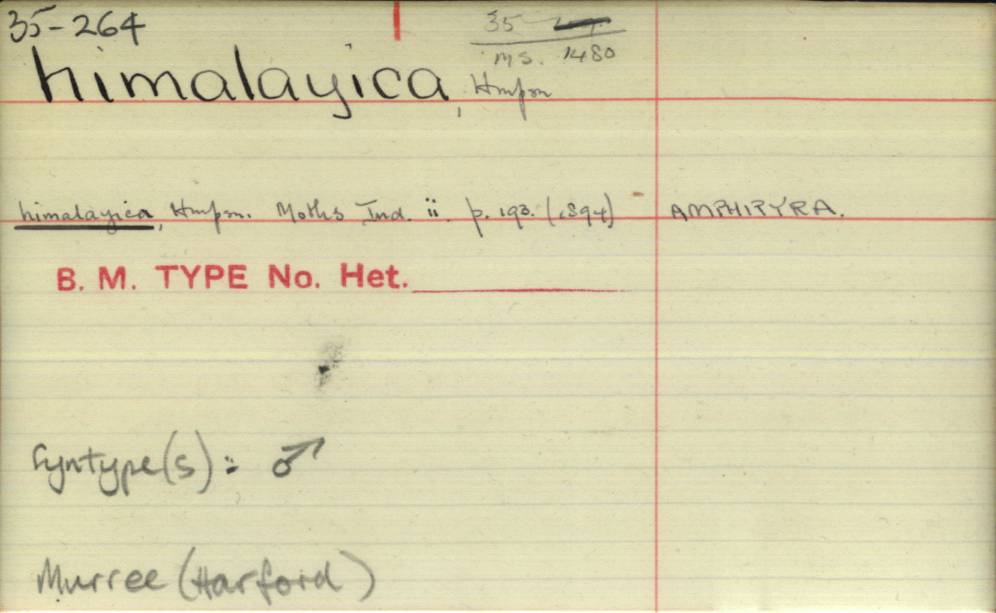 35-264
35
MS. 1480
himalayica, Hmpsn
himalayica, Hmpsn. Moths Ind. ii. p. 193. (1894) AMPHIPYRA.
B. M. TYPE No. Het.
Syntype(s): ♂
Murree (Harford)